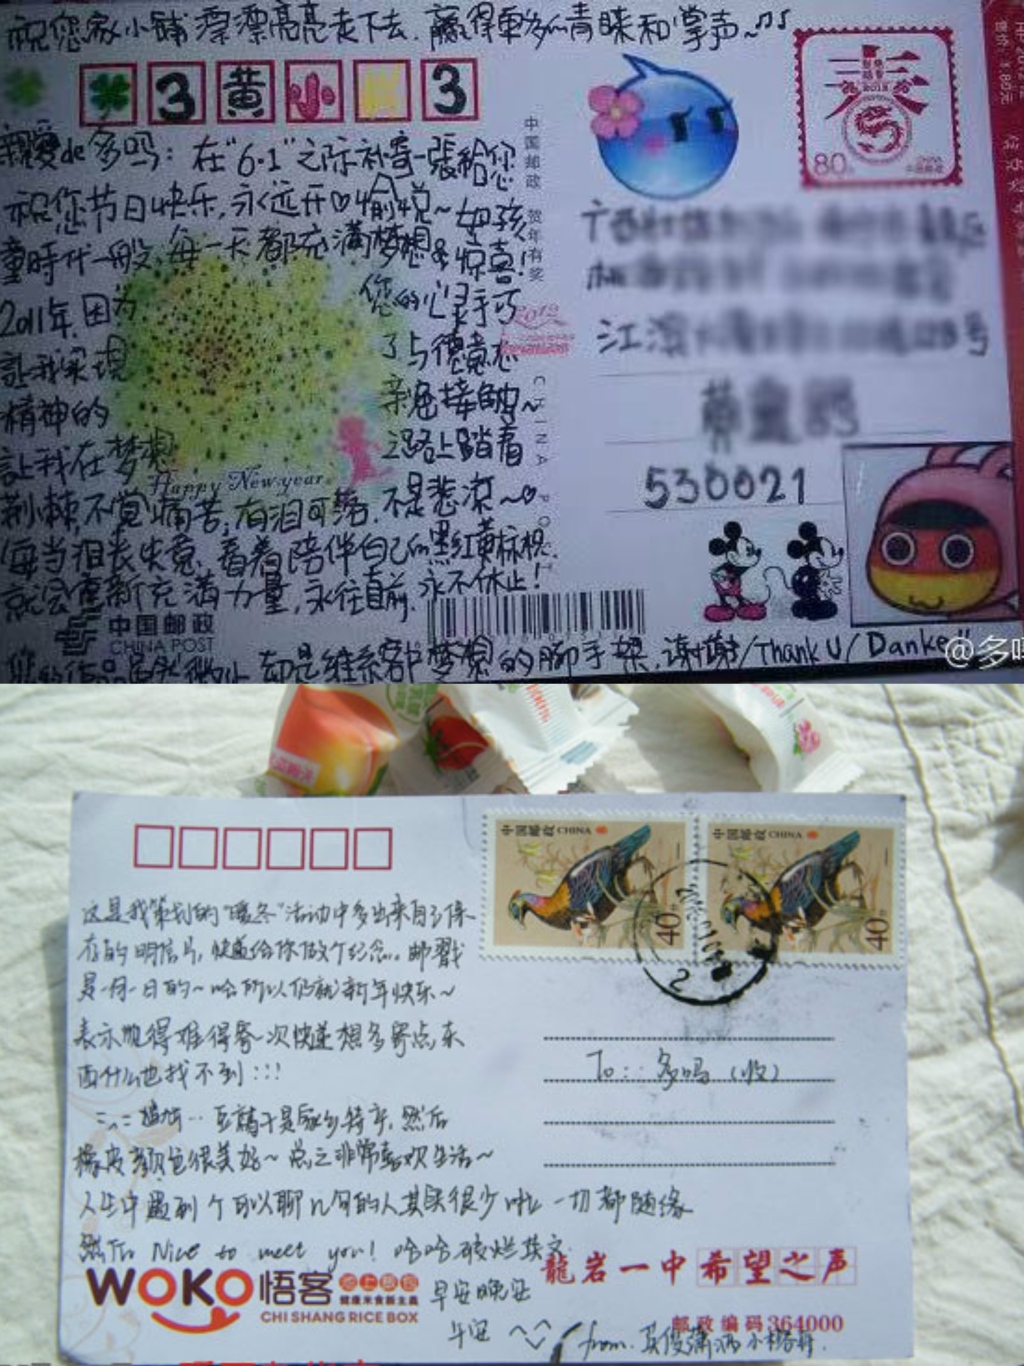 祝您家小铺漂漂亮亮走下去,赢得更多的青睐和掌声~
3黄小 3
親爱de多吗：在"6·1"之际补寄一張給您
祝您节日快乐,永远开♡愉悦~如孩
童時代一般,每一天都充满梦想&惊喜!
2011年,因为
您的心灵手巧
讓我实现
了与德意志
精神的
亲密接触~
讓我在梦想
之路上踏着
Happy New year
荆棘,不觉痛苦,有泪可落,不是悲凉~♡
每当沮丧失意,看着陪伴自己的黑红黄标梘
就会重新充满力量,永往直前,永不休止!
却是维系客户梦想的脚手架,谢谢/Thank U/Danke
中国邮政
CHINA POST
中国邮政 贺年有奖
2012
CHINA POST
春
2013
80分
江滨
号
530021
@多吗
中国邮政 CHINA
40分
中国邮政 CHINA
40分
这是我策划的"暖冬"活动中多出来自己保
存的明信片,快递给你做个纪念。邮戳
是一月一日的~哈所以仍就新年快乐~
表示觉得难得寄一次快递想多寄点东
西什么也找不到:::
豆腐干是家乡特产,然后
橡皮颜色很美好~总之非常喜欢生活~
人生中遇到个可以聊几句的人其实很少啦 一切都随缘
然后 Nice to meet you! 哈哈破烂英文
早安晚安
午安 ^_^
To: 多吗 (收)
WOKO悟客
池上飯包
健康米食新主義
CHI SHANG RICE BOX
龍岩一中希望之声
邮政编码364000
from.